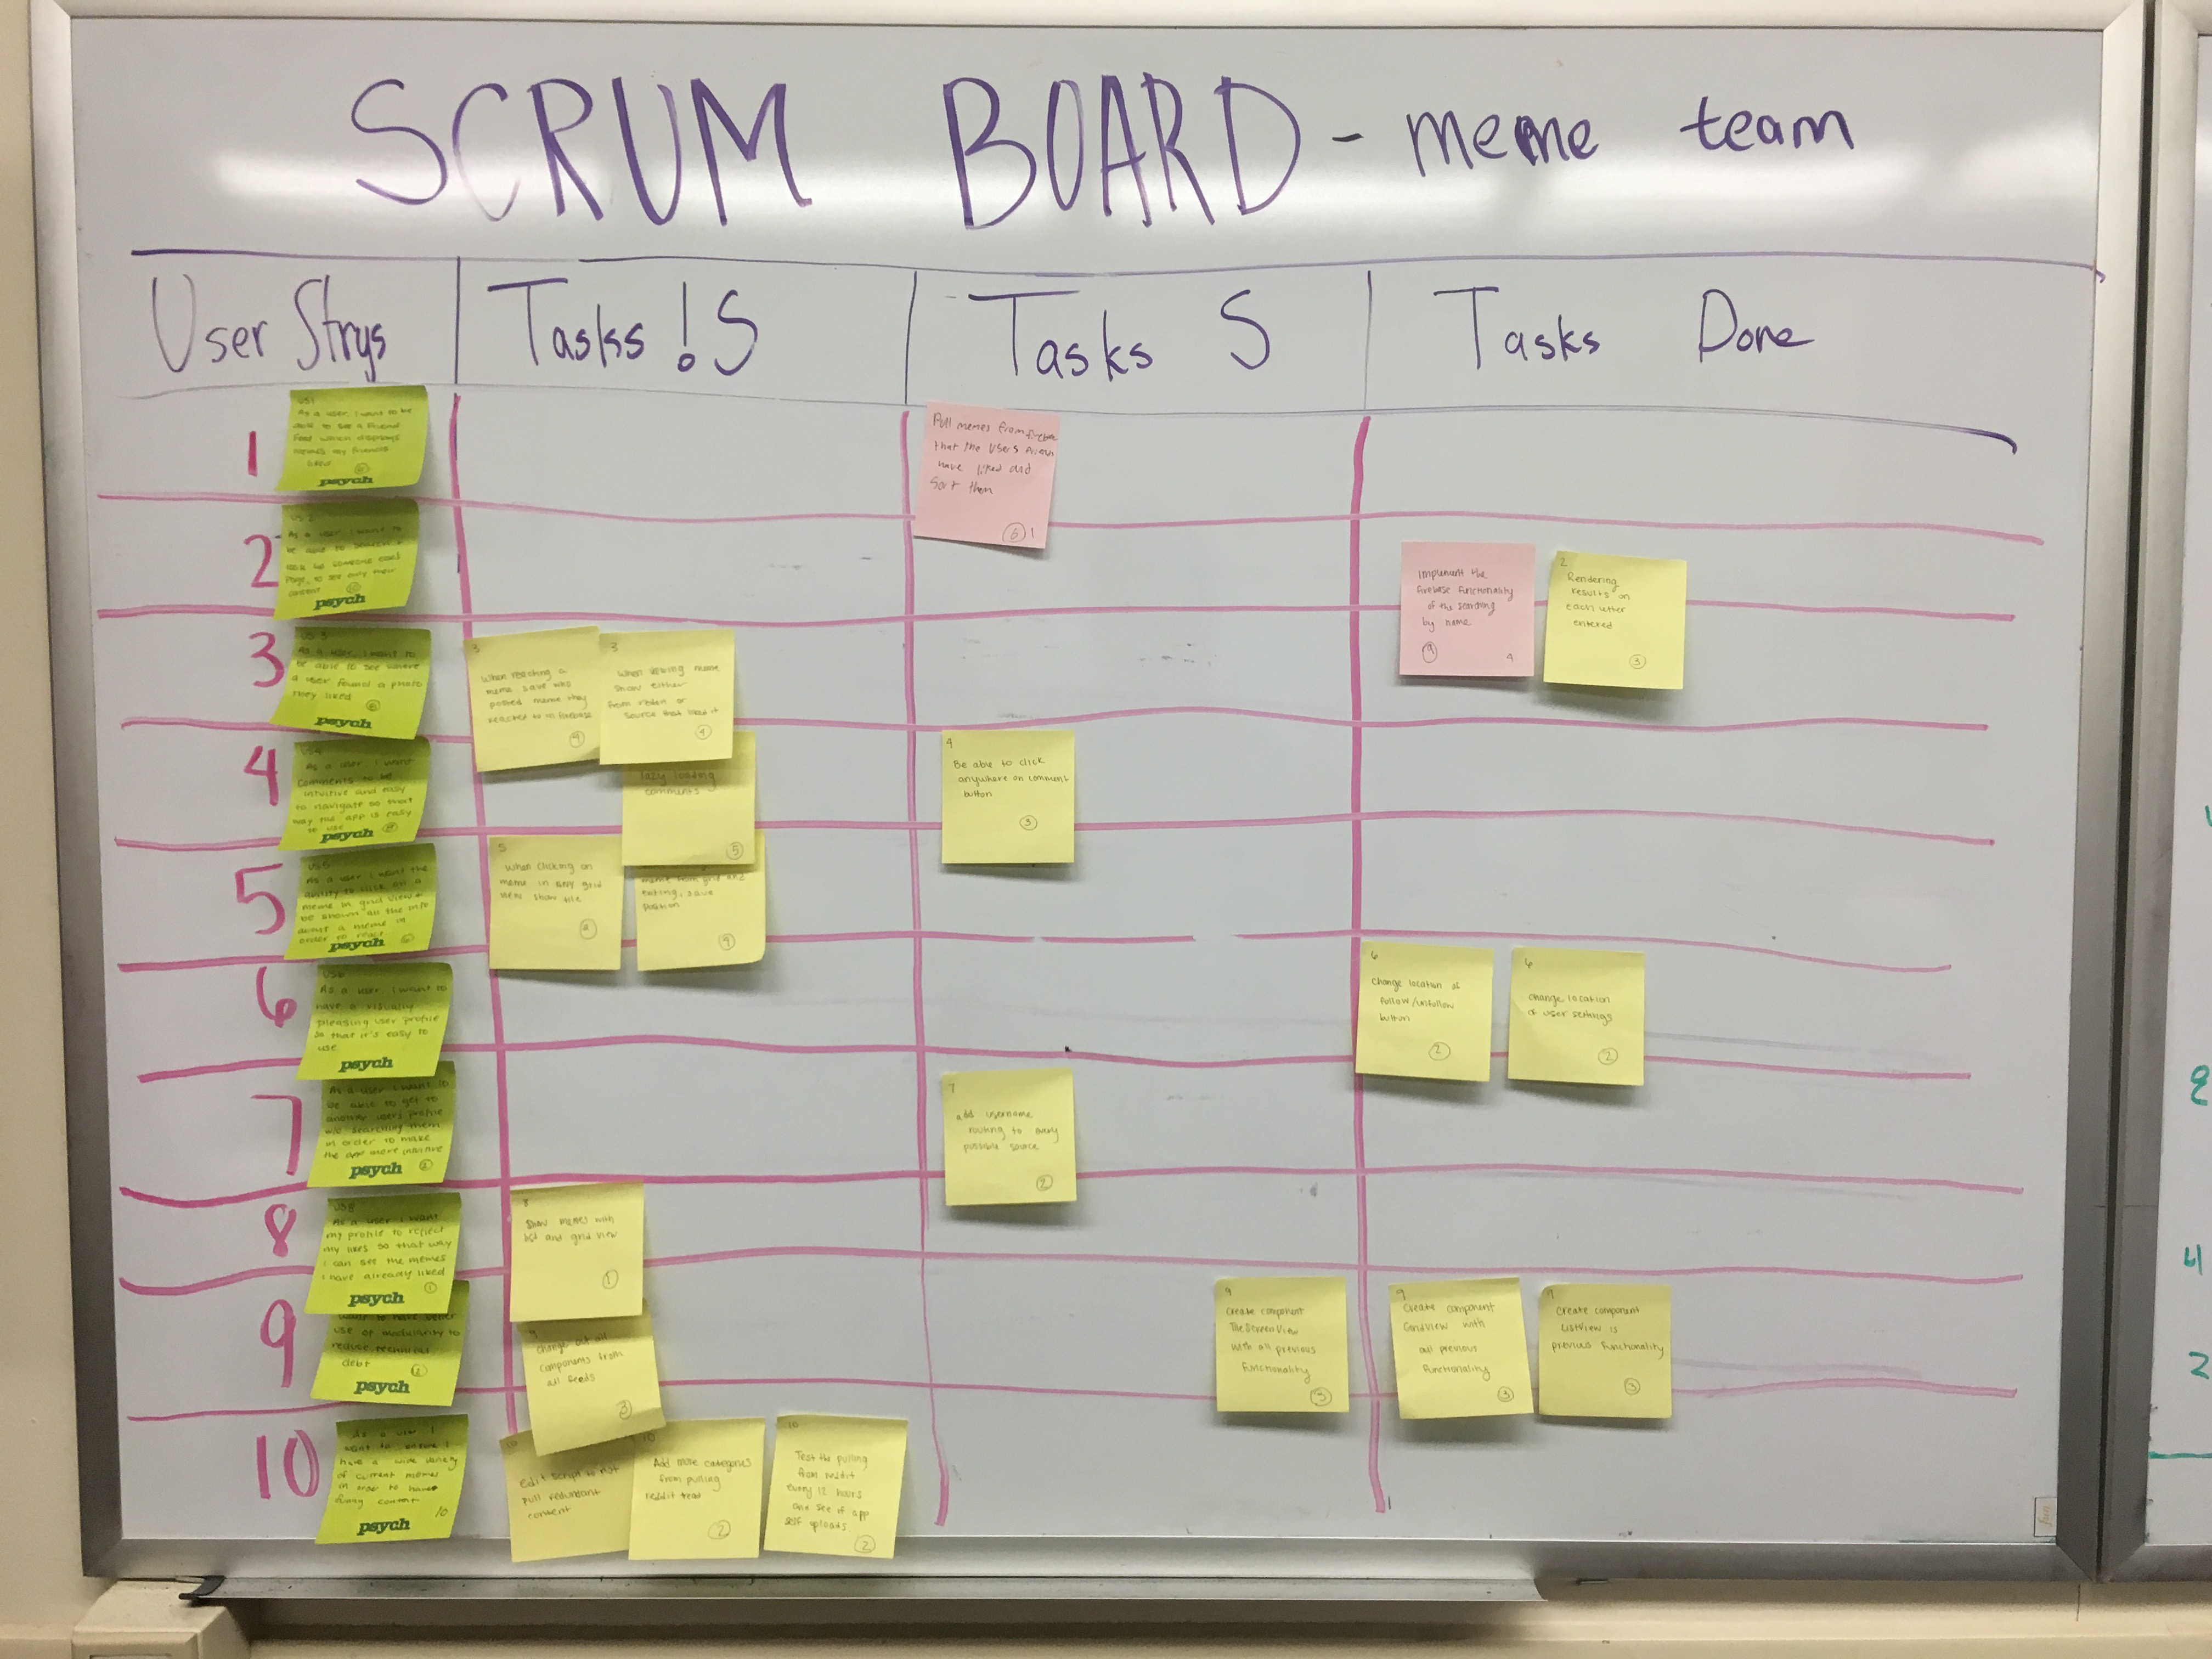 SCRUM BOARD - meme team
User Strys
Tasks !S
Tasks S
Tasks Done
1
US1
As a user, I want to be
able to see a friend
feed which displays
memes my friends
liked
psych
Pull memes from
that the users
have liked and
Sort them
1
2
US 2
psych
Implement the
firebase functionality
of the searching
by name
4
2
Rendering
results on
each
entered
3
3
US 3
As a user, I want to
be able to see where
a user found a photo
they liked
psych
3
When reacting a
meme save who
posted meme they
reacted to in firebase
4
3
When viewing meme
show either
from or
source that liked it
4
4
US4
As a user I want
comments to be
intuitive and easy
to navigate so that
way the app is easy
to use
psych
lazy loading
comments
5
4
Be able to click
anywhere on comment
button
3
5
US5
As a user I want the
ability to click on a
meme in grid view &
be shown all the info
about a meme in
order to react
psych
5
When clicking on
meme in any grid
view show tile
meme from grid and
exiting, save
position
6
US6
As a user, I want to
have a visually
pleasing user profile
so that it's easy to
use
psych
6
Change location of
follow/unfollow
button
2
6
change location
of user settings
2
7
As a user I want to
be able to get to
another users profile
w/o searching them
in order to make
the app more intuitive
psych
7
add username
routing to every
possible source
2
8
US8
As a user I want
my profile to reflect
my likes so that way
I can see the memes
I have already liked
1
psych
8
Show memes with
list and grid view
1
9
want to have better
use of modularity to
reduce technical
debt
psych
9
change out all
components from
all feeds
3
9
Create component
with all previous
functionality
9
Create component
Gridview with
all previous
functionality
3
9
Create component
ListView is
previous functionality
3
10
As a user I
want to ensure I
have a wide variety
of current memes
in order to have
funny content
10
psych
10
Edit script to not
pull redundant
content
10
Add more categories
from pulling
reddit feed
2
10
Test the pulling
from reddit
every 12 hours
and see if app
self uploads
2
8
4
2